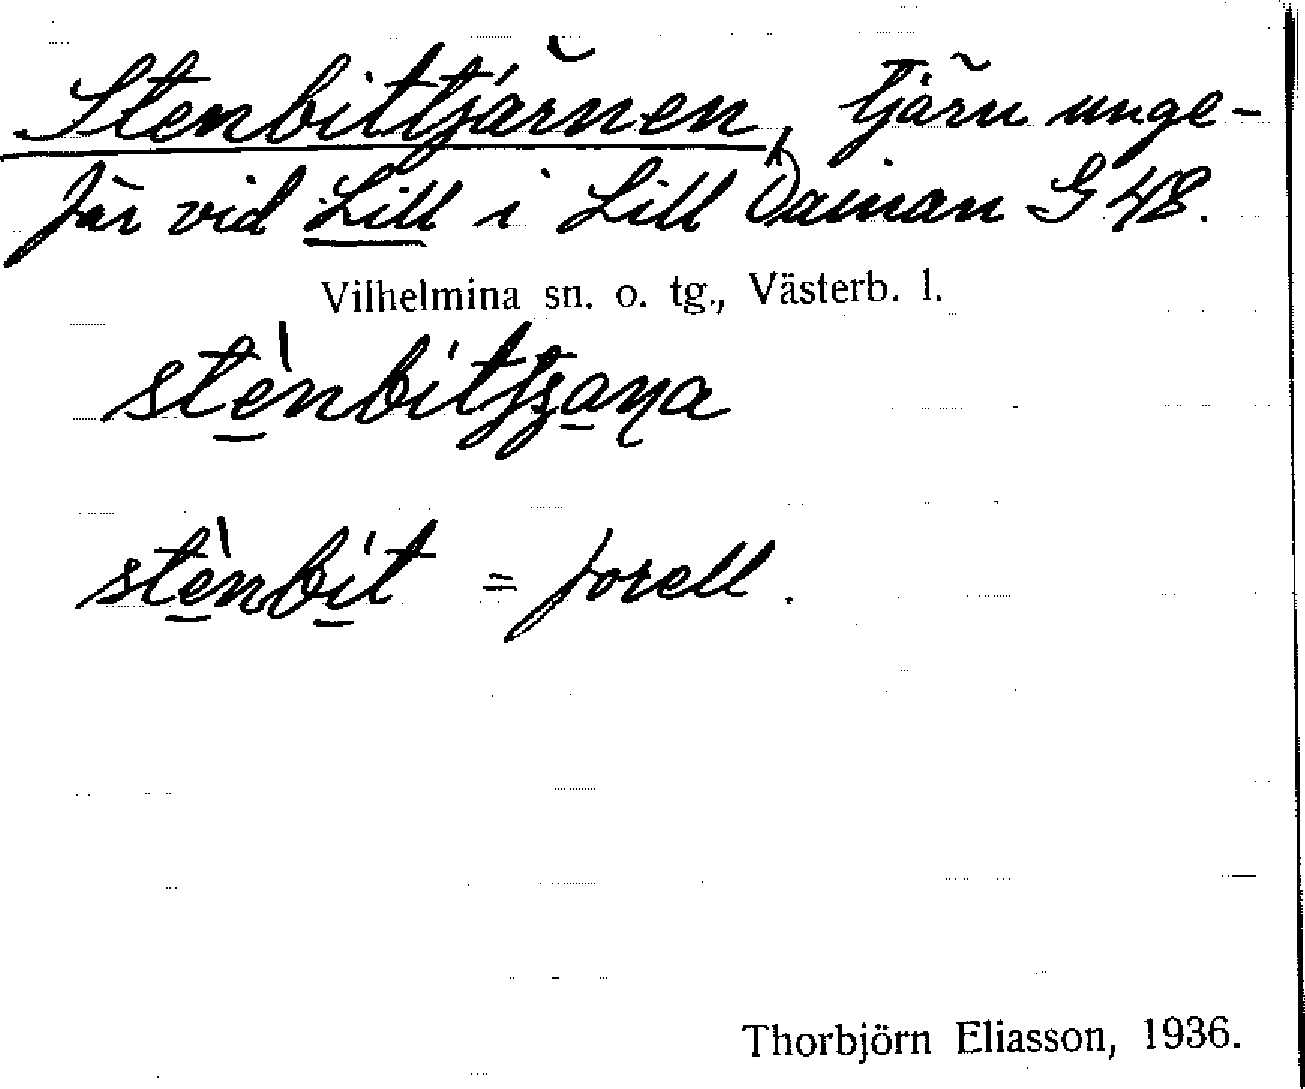 Stenbittjärnen, tjärn unge-
fär vid Lill i Lill Dainan G 48.
Vilhelmina sn. o. tg., Västerb. l.
stènbittjaṇa
stènbit = forell.
Thorbjörn Eliasson, 1936.